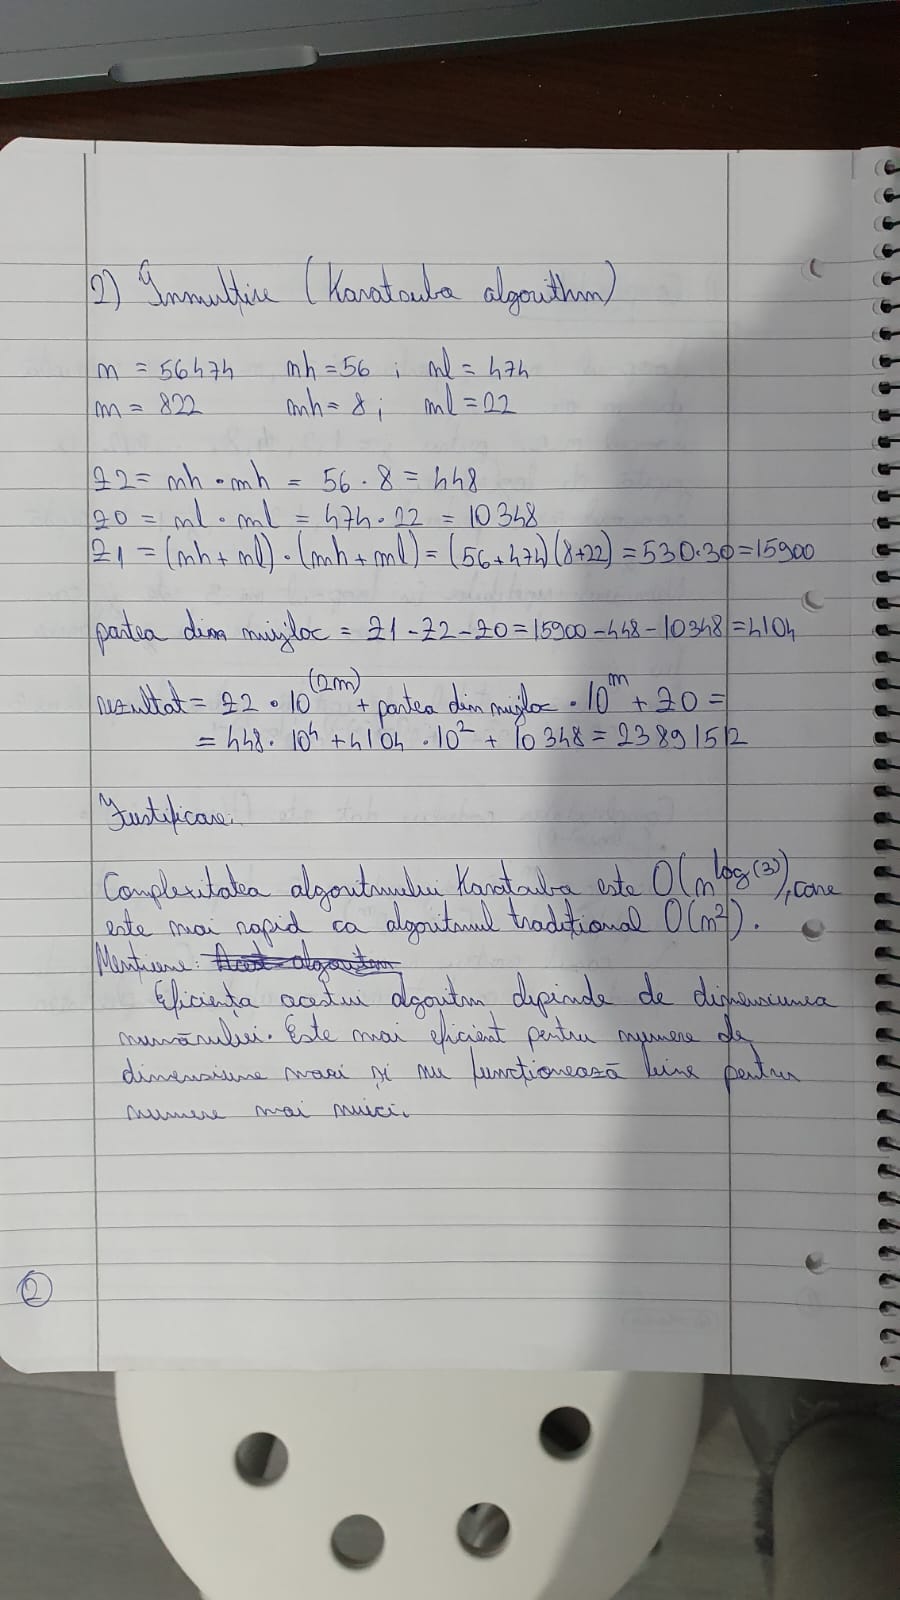 2) Înmulțire (Karatsuba algorithm)
m = 56474 mh = 56 ; ml = 474
n = 822 nh = 8 ; nl = 22
z2 = mh · nh = 56 · 8 = 448
z0 = ml · nl = 474 · 22 = 10348
z1 = (mh + ml) · (nh + nl) = (56+474)(8+22) = 530·30 = 15900
partea din mijloc = z1 - z2 - z0 = 15900 - 448 - 10348 = 4104
rezultat = z2 · 10^(2m) + partea din mijloc · 10^m + z0 =
= 448 · 10^4 + 4104 · 10^2 + 10348 = 2389152
Justificare:
Complexitatea algoritmului Karatsuba este O(n^log(3)), care
este mai rapid ca algoritmul tradițional O(n²).
Mențiune:
Eficiența acestui algoritm depinde de dimensiunea
numărului. Este mai eficient pentru numere de
dimensiune mari și nu funcționează bine pentru
numere mai mici.
2